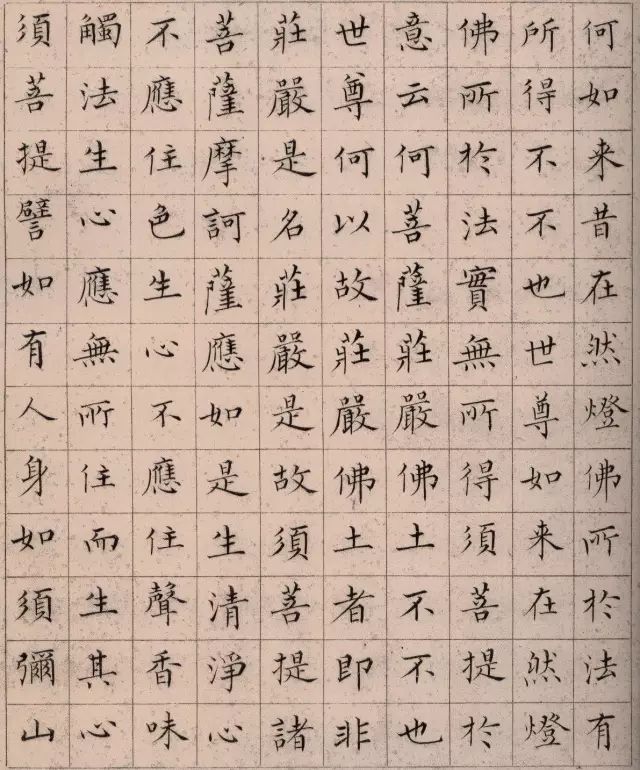 何如来昔在然燈佛所於法有
所得不不也世尊如来在然燈
佛所於法實無所得須菩提於
意云何菩薩莊嚴佛土不不也
世尊何以故莊嚴佛土者即非
莊嚴是名莊嚴是故須菩提諸
菩薩摩訶薩應如是生清淨心
不應住色生心不應住聲香味
觸法生心應無所住而生其心
須菩提譬如有人身如須彌山